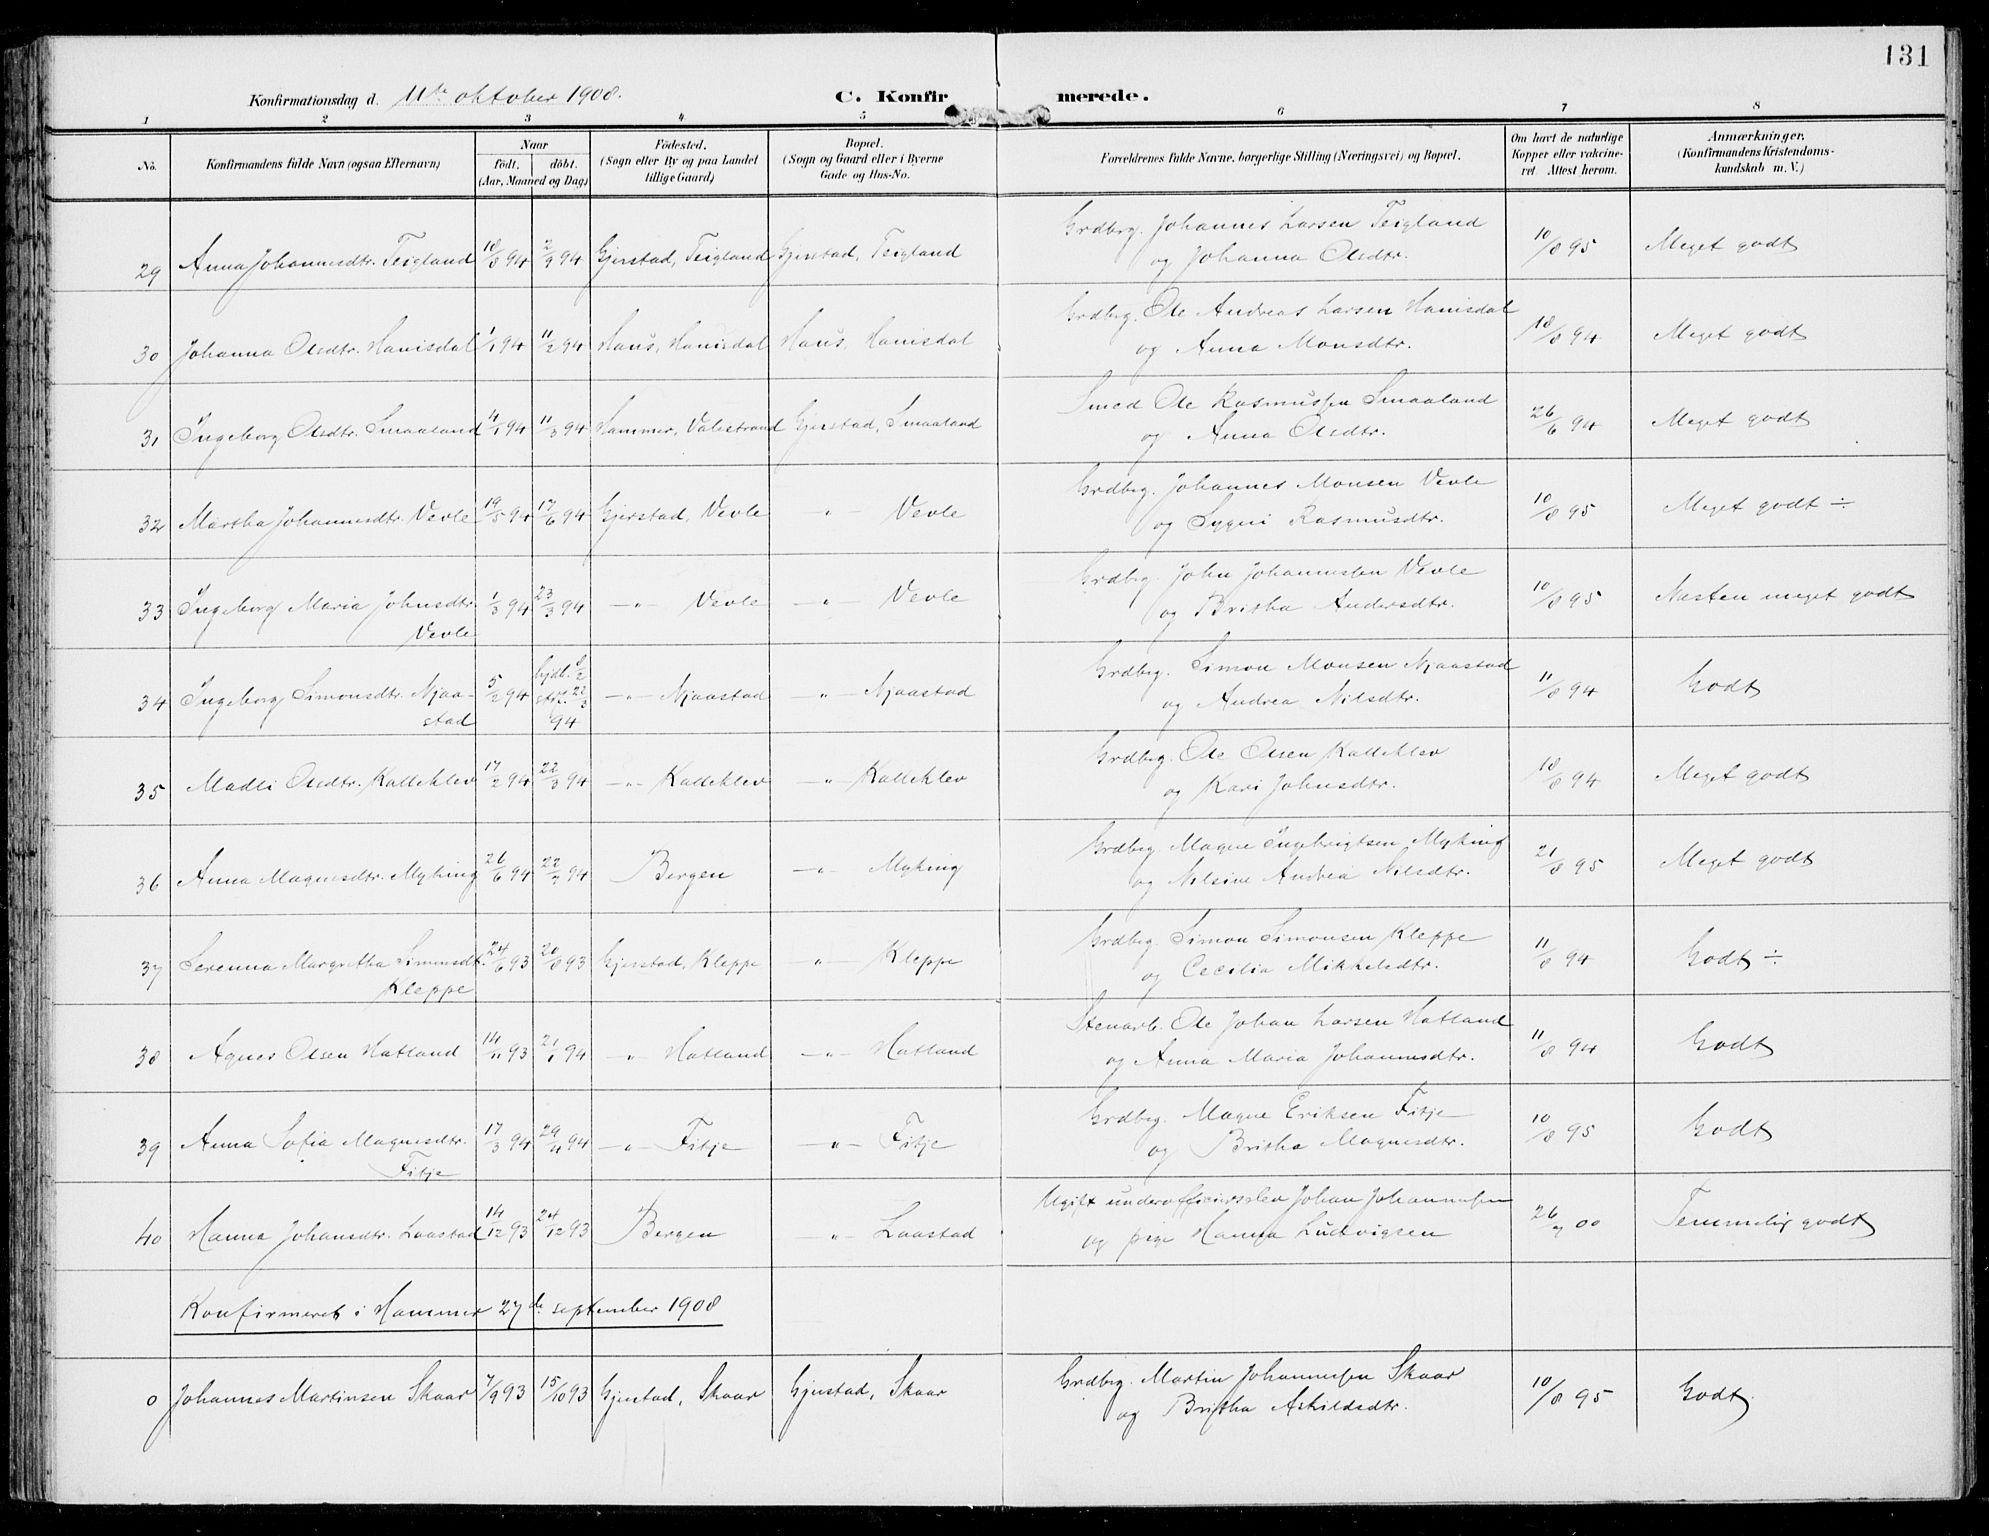 131
Konfirmationsdag d. 11te oktober 1908.
C. Konfirmerede.
1 2 3 4 5 6 7 8
No.
Konfirmandens fulde Navn (ogsaa Efternavn)
Naar
født. døbt.
(Aar, Maaned og Dag)
Fødested.
(Sogn eller By og paa Landet
tillige Gaard)
Bopæl.
(Sogn og Gaard eller i Byerne
Gade og Hus-No.
Forældrenes fulde Navne, borgerlige Stilling (Næringsvei) og Bopæl.
Om havt de naturlige
Kopper eller vakcine-
ret. Attest herom.
Anmærkninger.
(Konfirmandens Kristendoms-
kundskab m. V.)
Grdbrg. Johannes Larsen Teigland
29 Anna Johannesdtr. Teigland 18/8 94 2/9 94 Gjerstad, Teigland Gjerstad, Teigland og Johanna Olsdtr. 10/8 95 Meget godt
Grdbrg. Ole Andreas Larsen Hanisdal
30 Johanna Olsdtr. Hanisdal 1/1 94 11/2 94 Haus, Hanisdal Haus, Hanisdal og Anna Monsdtr. 18/8 94 Meget godt
Smed Ole Rasmussen Smaaland
31 Ingeborg Olsdtr. Smaaland 4/1 94 11/3 94 Hammer, Valestrand Gjerstad, Smaaland og Anna Olsdtr. 26/6 94 Meget godt
Grdbrg. Johannes Monsen Vevle
32 Martha Johannesdtr. Vevle 19/5 94 17/6 94 Gjerstad, Vevle -"- Vevle og Sygni Rasmusdtr. 10/8 95 Meget godt ÷
Grdbrg. John Johannessen Vevle
33 Ingeborg Maria Johnsdtr. 1/3 94 23/3 94 -"- Vevle -"- Vevle og Britha Andersdtr. 10/8 95 Næsten meget godt
Vevle
Grdbrg. Simon Monsen Njaastad
34 Ingeborg Simonsdtr. Njaa- 5/2 94 hjdb. stf. 22/3 -"- Njaastad -"- Njaastad og Andrea Nilsdtr. 11/8 94 Godt
stad 94
Grdbrg. Ole Olsen Kalleklev
35 Madli Olsdtr. Kalleklev 17/2 94 22/3 94 -"- Kalleklev -"- Kalleklev og Kari Johnsdtr. 18/8 94 Meget godt
Grdbrg. Magne Ingebrigtsen Myking
36 Anna Magnesdtr. Myking 26/6 94 22/7 94 Bergen -"- Myking og Nilsine Andrea Nilsdtr. 21/8 95 Meget godt
Grdbrg. Simon Simonsen Kleppe
37 Serenna Margretha Simonsdt. 24/6 93 20/8 93 Gjerstad, Kleppe -"- Kleppe og Cecilia Mikkelsdtr. 11/8 94 Godt ÷
Kleppe
Stenarb. Ole Johan Larsen Hatland
38 Agnes Olsen Hatland 14/11 93 21/1 94 -"- Hatland -"- Hatland og Anna Maria Johannesdtr. 11/8 94 Godt
Grdbrg. Magne Eriksen Fitje
39 Anna Sofia Magnesdtr. 17/3 94 29/4 94 -"- Fitje -"- Fitje og Britha Magnesdtr. 10/8 95 Godt
Fitje
Ugift underofficerselev Johan Johannessen
40 Hanna Johansdtr. Laastad 14/12 93 24/12 93 Bergen -"- Laastad og pige Hanna Ludvigsen 26/7 00 Temmelig godt
Konfirmeret i Hammer 27de september 1908
Grdbrg. Martin Johannessen Skaar
0 Johannes Martinsen Skaar 7/9 93 15/10 93 Gjerstad, Skaar Gjerstad, Skaar og Britha Askildsdtr. 10/8 95 Godt.